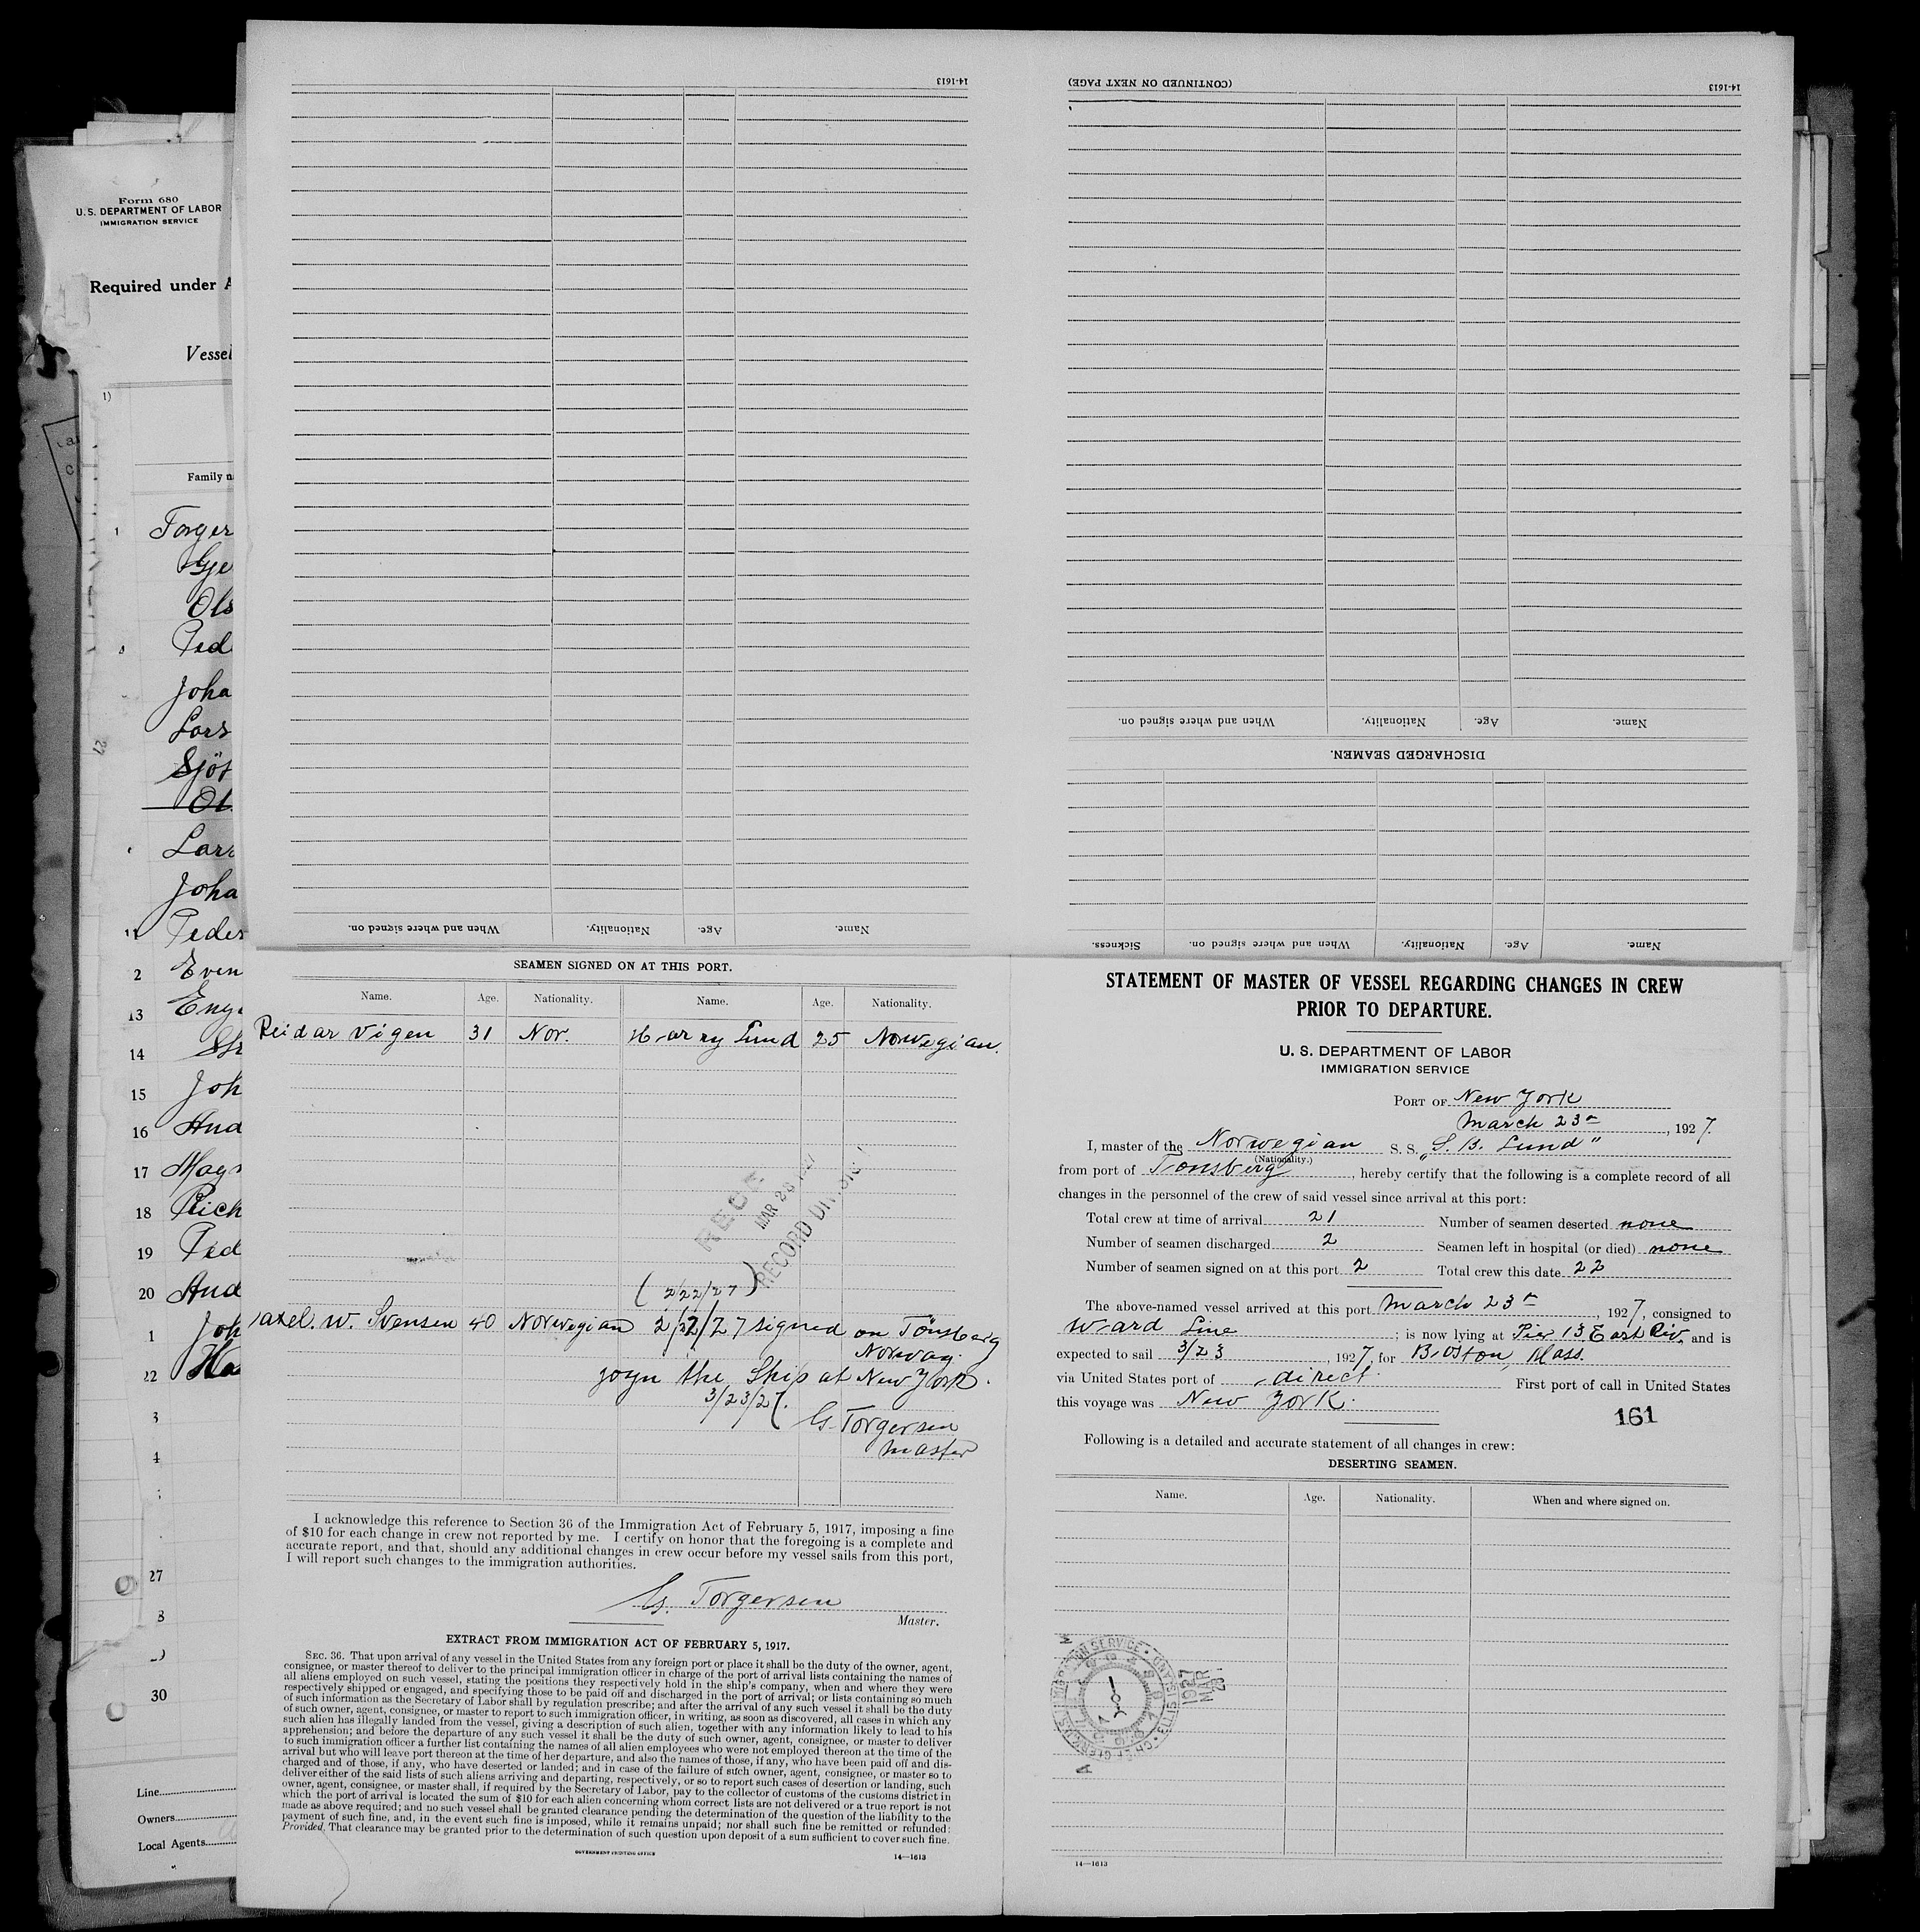 Form 680
U. S. DEPARTMENT OF LABOR
IMMIGRATION SERVICE
Required under A
Vessel
1)
Family n
1 Torger
Gje
Ols
Ped
Joha
Lars
Sjöt
Ol
Lars
Joha
11 Peder
2 Even
13 Eng
14
15 Joh
16 And
17 Mag
18 Rich
19 Ped
20 And
1 Joh
22 Ha
3
4
27
8
30
Line
Owners
Local Agents
14-1613
When and where signed on.
Nationality.
Age.
Name.
(CONTINUED ON NEXT PAGE)
14-1613
When and where signed on.
Nationality.
Age.
Name.
DISCHARGED SEAMEN.
Sickness.
When and where signed on.
Nationality.
Age.
Name.
SEAMEN SIGNED ON AT THIS PORT.
Name. Age. Nationality. Name. Age. Nationality.
Reidar Vigen 31 Nor. Harry Lund 25 Norwegian.
MAR 28
RECORD DIVISION
(2/22/27)
Axel. W. Svensen 40 Norwegian 2/22/27 signed on Tönsberg
Norway.
joyn the Ship at New York.
3/23/27.
G. Torgersen
Master
I acknowledge this reference to Section 36 of the Immigration Act of February 5, 1917, imposing a fine
of $10 for each change in crew not reported by me. I certify on honor that the foregoing is a complete and
accurate report, and that, should any additional changes in crew occur before my vessel sails from this port,
I will report such changes to the immigration authorities.
G. Torgersen
Master.
EXTRACT FROM IMMIGRATION ACT OF FEBRUARY 5, 1917.
SEC. 36. That upon arrival of any vessel in the United States from any foreign port or place it shall be the duty of the owner, agent,
consignee, or master thereof to deliver to the principal immigration officer in charge of the port of arrival lists containing the names of
all aliens employed on such vessel, stating the positions they respectively hold in the ship's company, when and where they were
respectively shipped or engaged, and specifying those to be paid off and discharged in the port of arrival; or lists containing so much
of such information as the Secretary of Labor shall by regulation prescribe; and after the arrival of any such vessel it shall be the duty
of such owner, agent, consignee, or master to report to such immigration officer, in writing, as soon as discovered, all cases in which any
such alien has illegally landed from the vessel, giving a description of such alien, together with any information likely to lead to his
apprehension; and before the departure of any such vessel it shall be the duty of such owner, agent, consignee, or master to deliver
to such immigration officer a further list containing the names of all alien employees who were not employed thereon at the time of the
arrival but who will leave port thereon at the time of her departure, and also the names of those, if any, who have been paid off and dis-
charged and of those, if any, who have deserted or landed; and in case of the failure of such owner, agent, consignee, or master so to
deliver either of the said lists of such aliens arriving and departing, respectively, or so to report such cases of desertion or landing, such
owner, agent, consignee, or master shall, if required by the Secretary of Labor, pay to the collector of customs of the customs district in
which the port of arrival is located the sum of $10 for each alien concerning whom correct lists are not delivered or a true report is not
made as above required; and no such vessel shall be granted clearance pending the determination of the question of the liability to the
payment of such fine, and, in the event such fine is imposed, while it remains unpaid; nor shall such fine be remitted or refunded:
Provided, That clearance may be granted prior to the determination of such question upon deposit of a sum sufficient to cover such fine.
GOVERNMENT PRINTING OFFICE
14—1613
STATEMENT OF MASTER OF VESSEL REGARDING CHANGES IN CREW
PRIOR TO DEPARTURE.
U. S. DEPARTMENT OF LABOR
IMMIGRATION SERVICE
PORT OF New York
March 23rd, 1927.
I, master of the Norwegian S. S. "S. B. Lund"
(Nationality.)
from port of Tönsberg, hereby certify that the following is a complete record of all
changes in the personnel of the crew of said vessel since arrival at this port:
Total crew at time of arrival 21 Number of seamen deserted none
Number of seamen discharged 2 Seamen left in hospital (or died) none
Number of seamen signed on at this port 2 Total crew this date 22
The above-named vessel arrived at this port March 23rd, 1927, consigned to
Ward Line; is now lying at Pier 13 East Riv, and is
expected to sail 3/23, 1927, for Boston, Mass.
via United States port of direct. First port of call in United States
this voyage was New York.
161
Following is a detailed and accurate statement of all changes in crew:
DESERTING SEAMEN.
Name. Age. Nationality. When and where signed on.
1927
MAR
23
14—1613